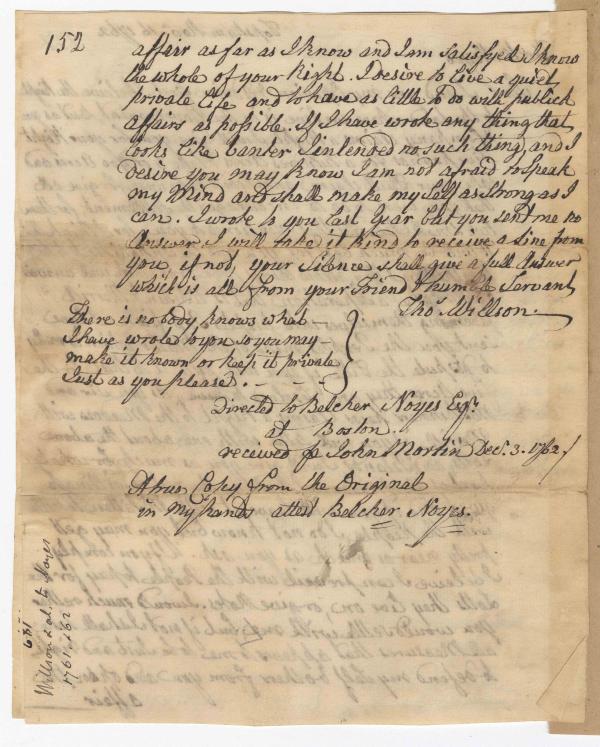 152
affair as far as I know and I am satisfyed I know
the whole of your Right. I desire to Live a quiet
private Life and to have as little to do with publick
affairs as possible. If I have wrote any thing that
looks like banter I intended no such thing, and I
desire you may know I am not afraid to Speak
my Mind and shall make my Self as Strong as I
can. I wrote to you Last Year but you sent me no
Answer, I will take it kind to receive a Line from
you, if not, your Silence shall give a full Answer
which is all from your Friend & humble Servant
Thos. Willson.
There is no body knows what
I have wrote to you so you may
make it known or keep it private
Just as you please.
Directed to Belcher Noyes Esqr.
at Boston.
received pr John Martin Decr. 3. 1762.
A true Copy from the Original
in my hands attest Belcher Noyes.
Willson et al. to Noyes
1761-162